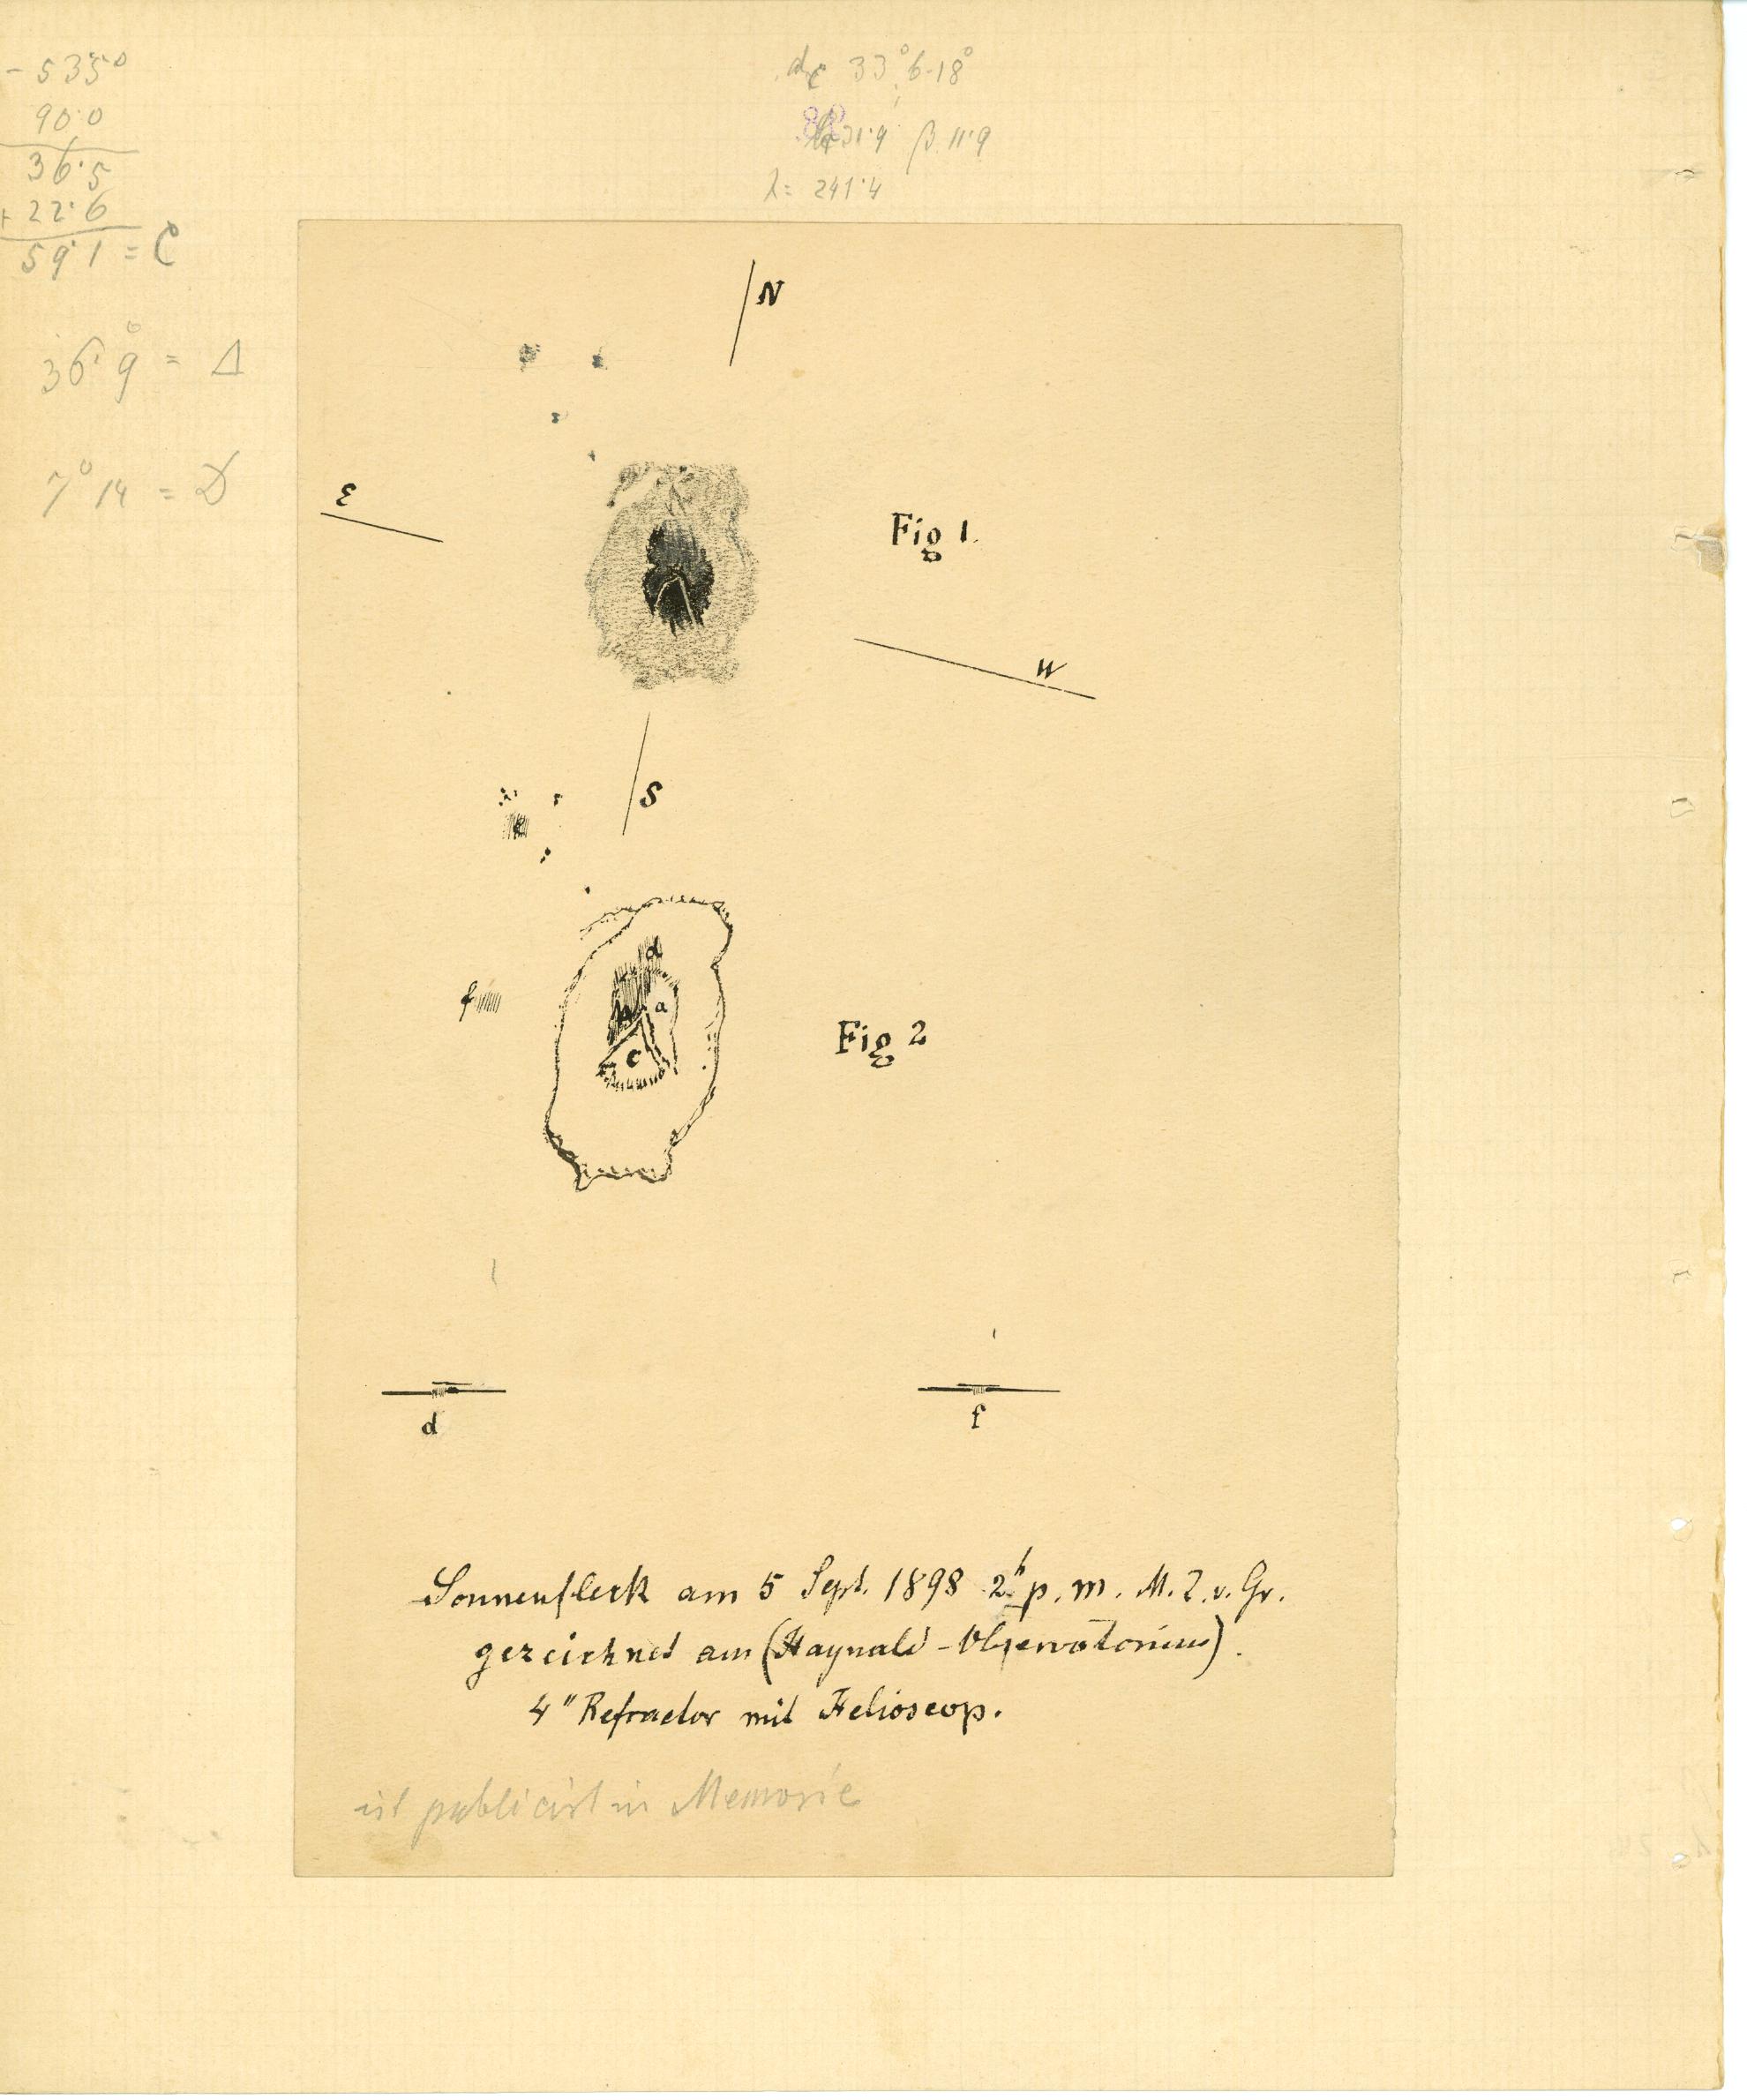 - 53·5°
90·0
36·5
+ 22·6
59·1 = C
36·9° = Δ
7° 14 = D
33° 6·18°
31·9 β 11·9
λ= 241·4
N
E
Fig 1.
W
S
e
d
f
b a
c
Fig 2
d
f
Sonnenfleck am 5 Sept. 1898 2h p. m. M. Z. v. Gr.
gezeichnet am (Haynald-Observatorium).
4" Refractor mit Helioscop.
ist publicirt in Memorie